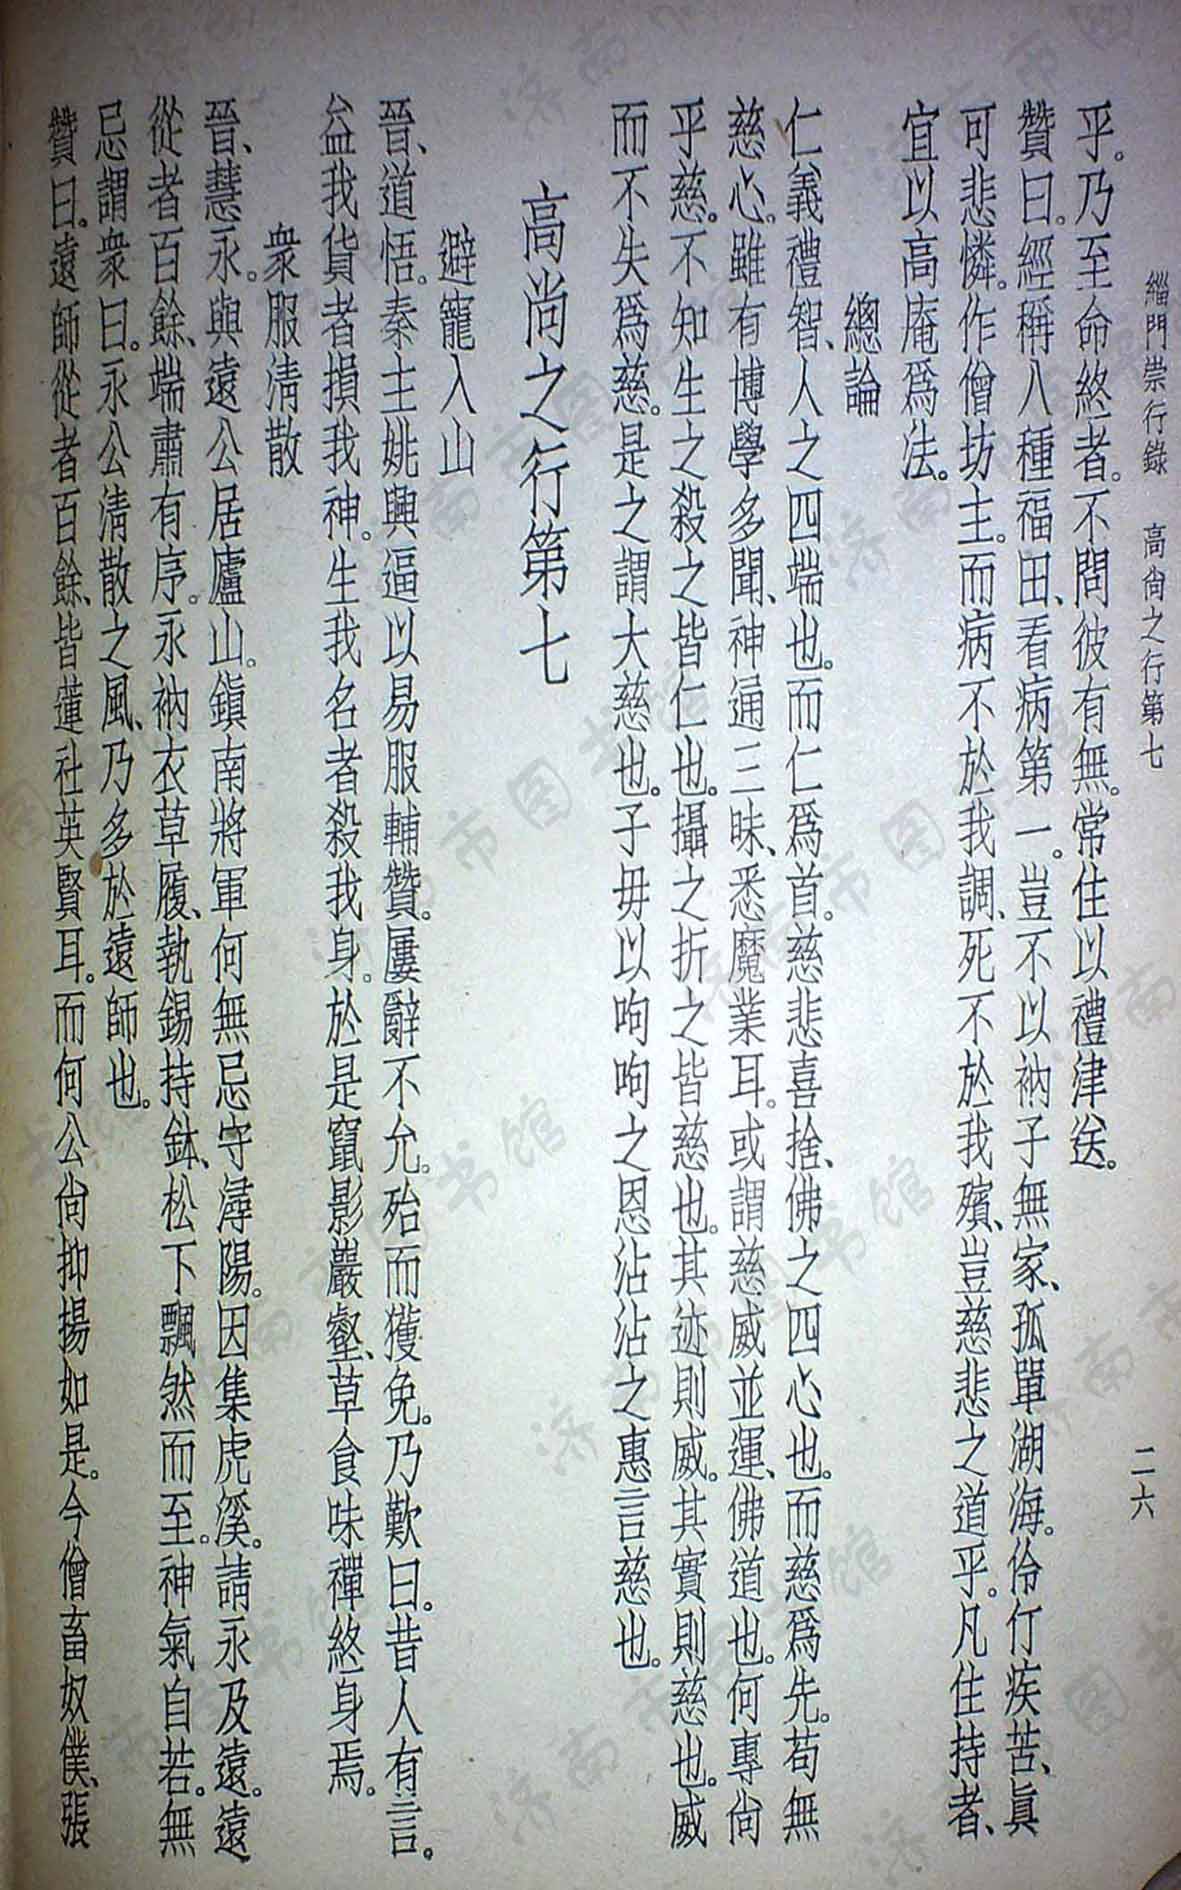 緇門崇行錄　高尙之行第七　二六
乎。乃至命終者。不問彼有無。常住以禮津送。
贊曰。經稱八種福田、看病第一。豈不以衲子無家、孤單湖海。伶仃疾苦、眞
可悲憐。作僧坊主。而病不於我調、死不於我殯、豈慈悲之道乎。凡住持者、
宜以高庵爲法。
總論
仁義禮智、人之四端也。而仁爲首。慈悲喜捨、佛之四心也。而慈爲先。苟無
慈心。雖有博學多聞、神通三昧、悉魔業耳。或謂慈威並運、佛道也。何專尙
乎慈。不知生之殺之皆仁也。攝之折之皆慈也。其迹則威。其實則慈也。威
而不失爲慈。是之謂大慈也。子毋以呴呴之恩沾沾之惠言慈也。
高尚之行第七
避寵入山
晉、道悟。秦主姚興逼以易服輔贊。屢辭不允。殆而獲免。乃歎曰。昔人有言。
益我貨者損我神。生我名者殺我身。於是竄影巖壑、草食味禪終身焉。
衆服清散
晉、慧永。與遠公居廬山。鎭南將軍何無忌守潯陽。因集虎溪。請永及遠。遠
從者百餘、端肅有序。永衲衣草履、執錫持鉢、松下飄然而至。神氣自若。無
忌謂衆曰。永公清散之風、乃多於遠師也。
贊曰。遠師從者百餘、皆蓮社英賢耳。而何公尙抑揚如是。今僧畜奴僕、張
济南市图书馆